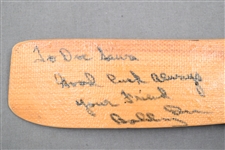 To Doc
Good Luck Always
Your Friend
Bobby Orr